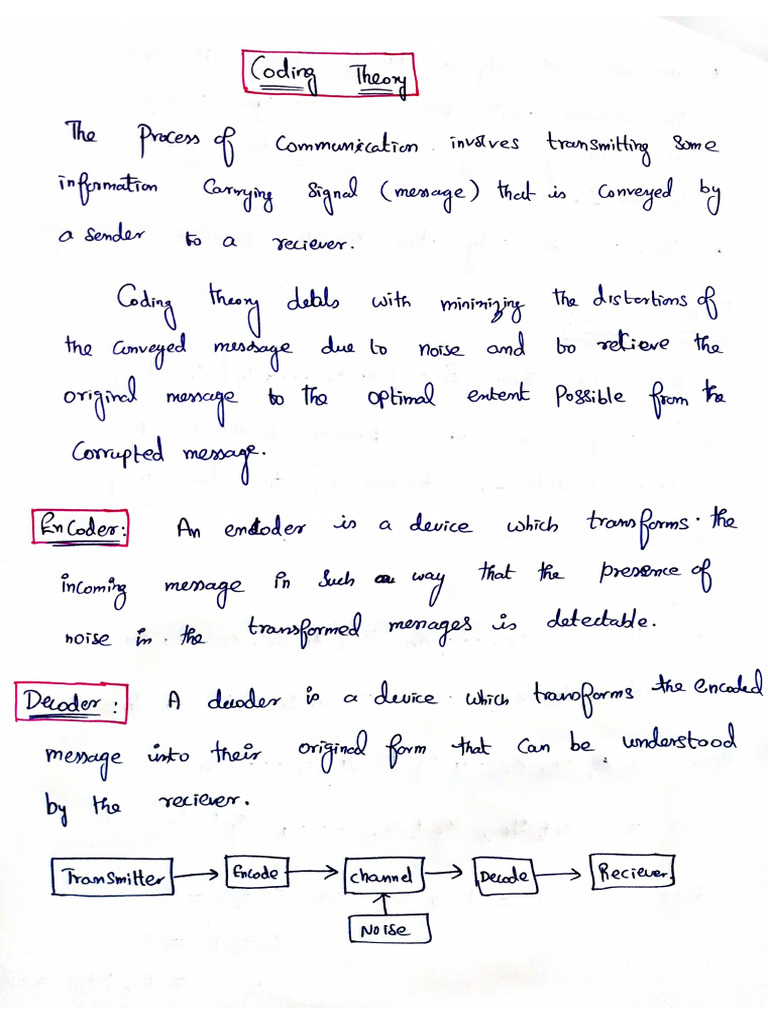 Coding Theory
The Process of Communication involves transmitting some
information Carrying Signal (message) that is conveyed by
a sender to a reciever.
Coding theory deals with minimizing the distortions of
the conveyed message due to noise and to retieve the
original message to the optimal entent possible from the
Corrupted message.
Encoder: An encoder is a device which transforms the
incoming message in such a way that the presence of
noise in the transformed messages is detectable.
Decoder: A decoder is a device which transforms the encoded
message into their original form that can be understood
by the reciever.
Transmitter Encode Channel Decode Reciever
Noise